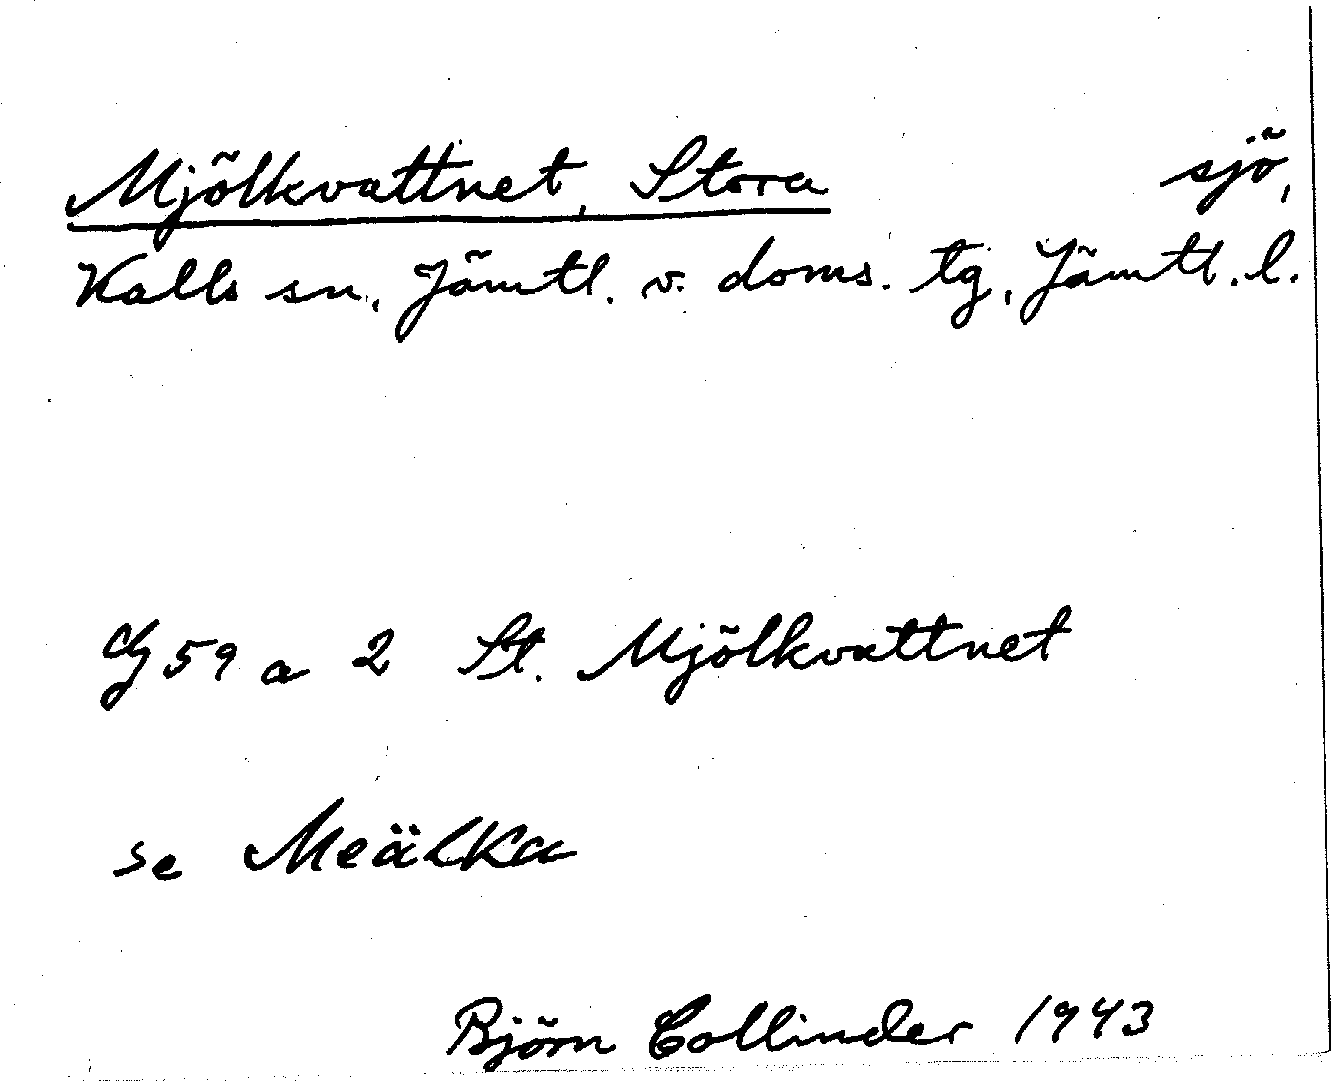 Mjölkvattnet, Stora sjö,
Kalls sn, Jämtl. v. doms. tg, Jämtl. l.
Cg 59 a 2 St. Mjölkvattnet
se Meälka
Björn Collinder 1943